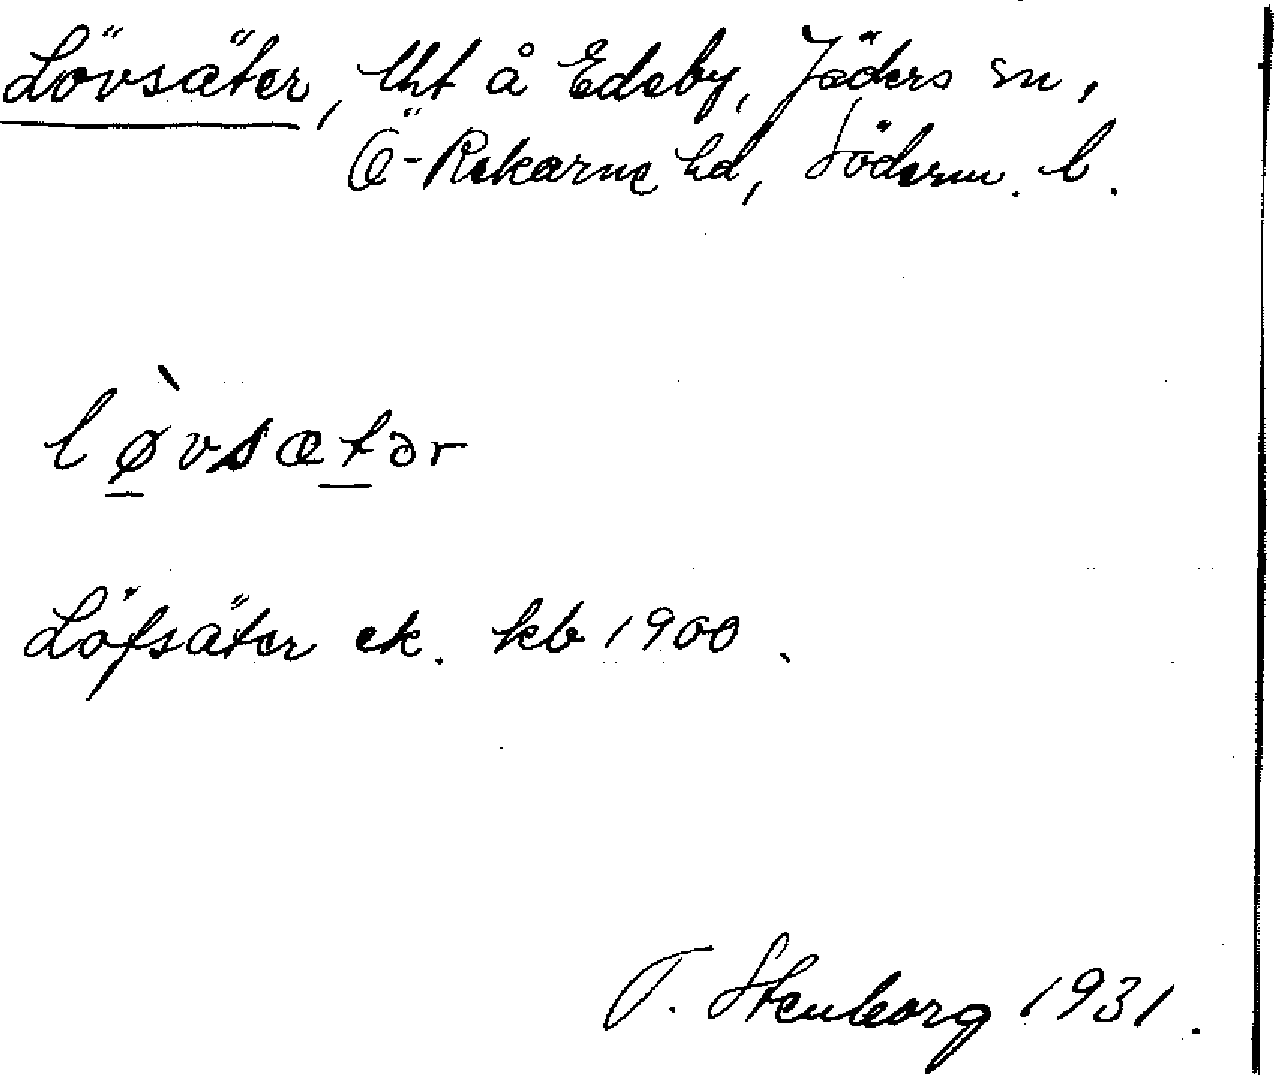 Lövsäter, lht å Edeby, Jäders sn,
Ö-Rekarne hd, Söderm. l.
lø̀vsætər
Löfsäter ek. kb 1900.
T. Stenborg 1931.